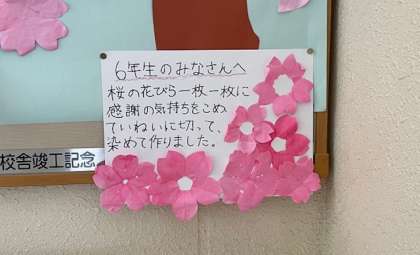 6年生のみなさんへ
桜の花びら一枚一枚に
感謝の気持ちをこめ
ていねいに切って、
染めて作りました。
校舎竣工記念